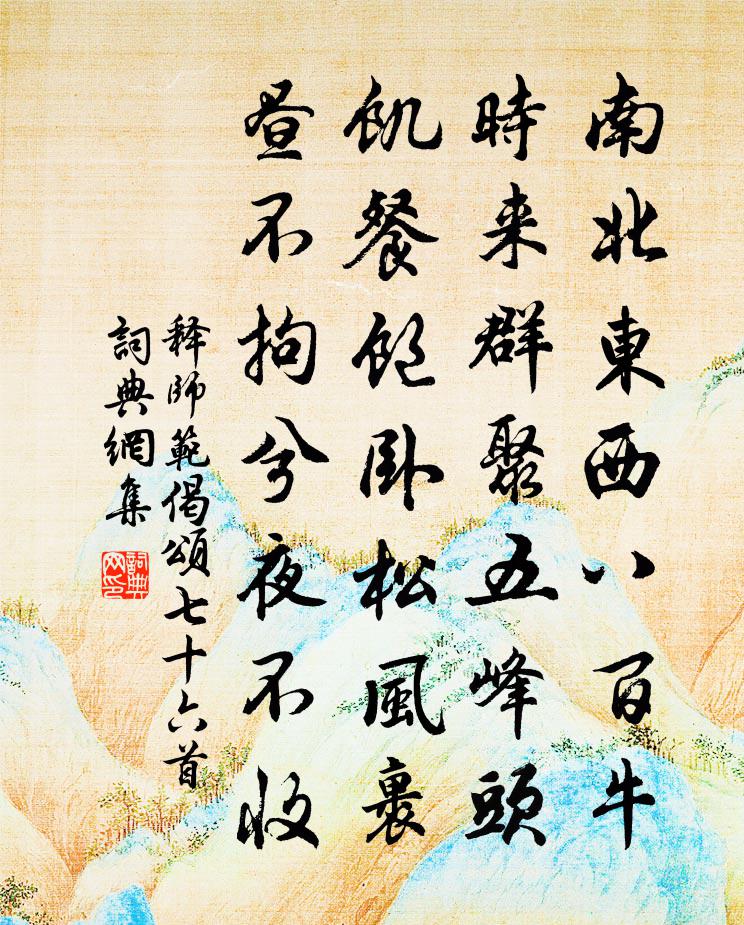 南北東西八百牛
時来群聚五峰頭
飢餐飽卧松風裹
昼不拘兮夜不收
释師範偈頌七十六首
詞典網集
詞典网印